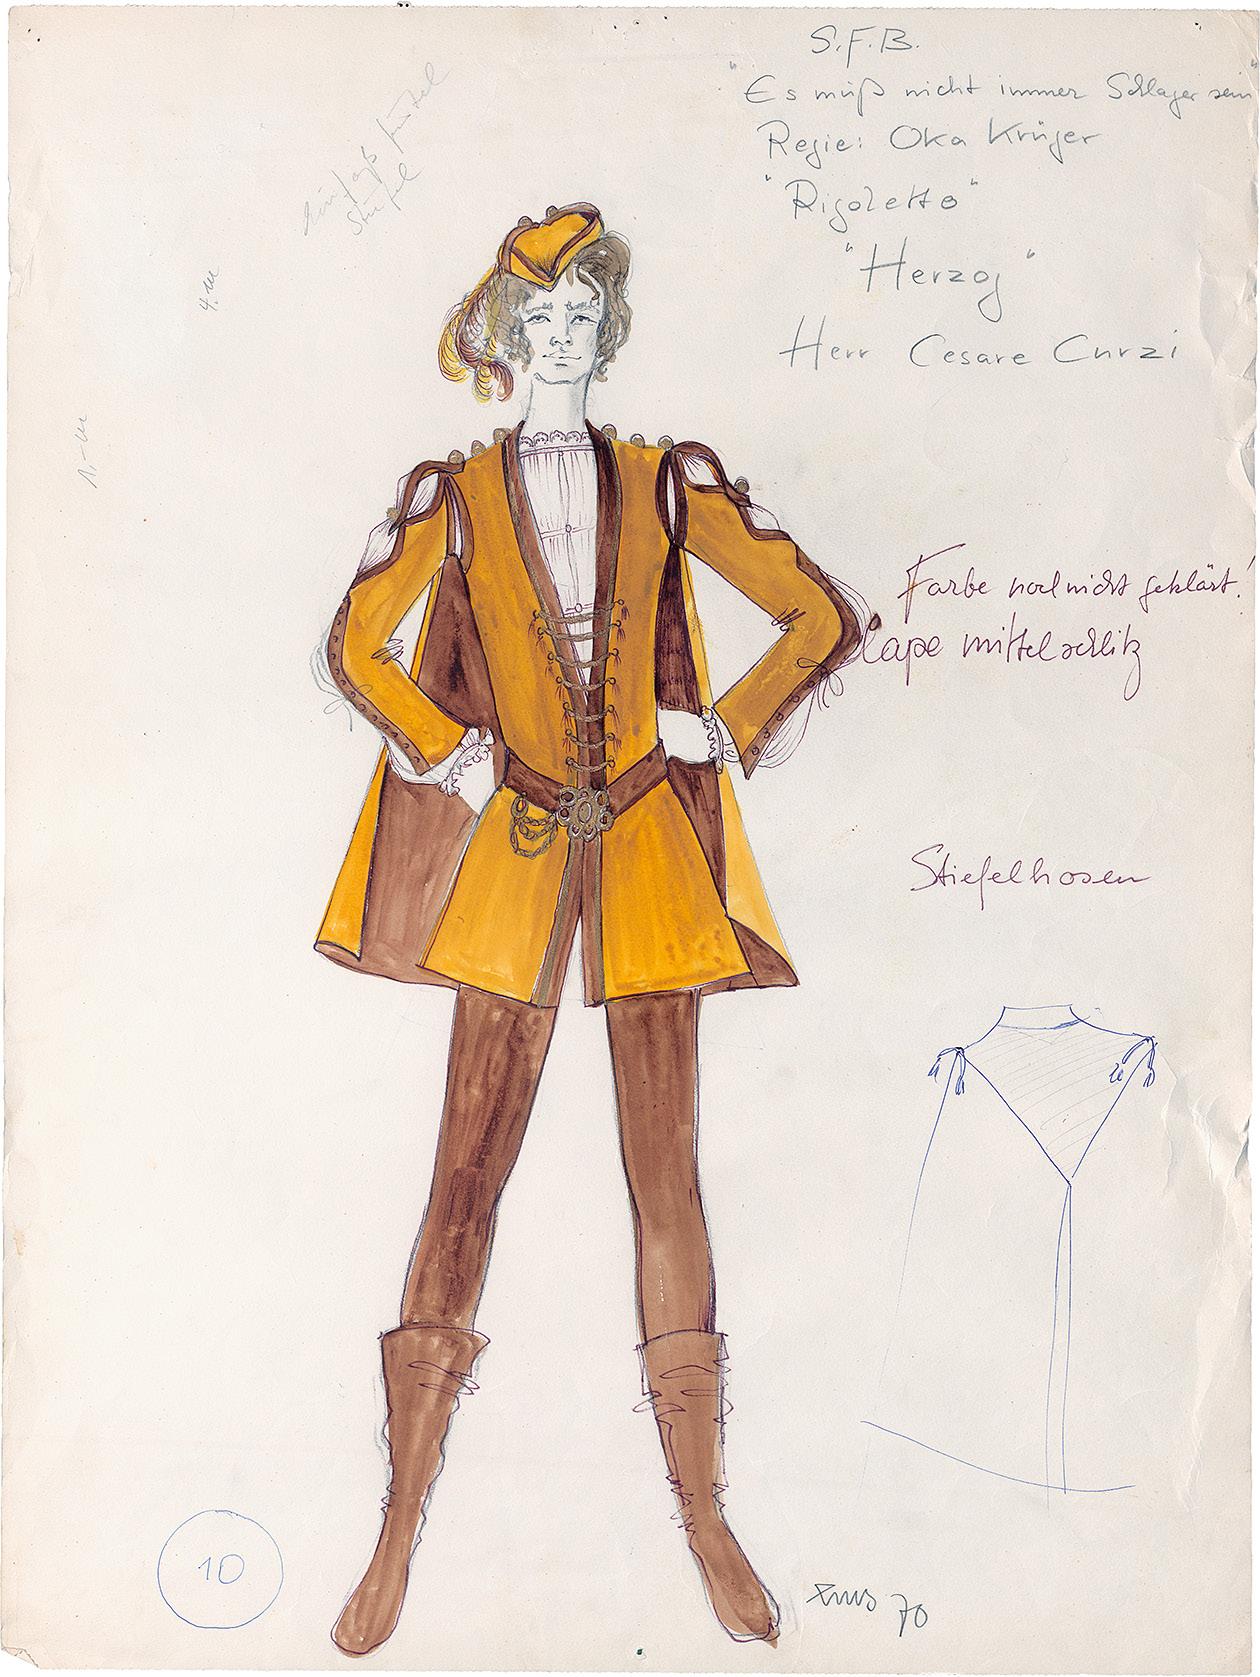 S.F.B.
"Es muß nicht immer Schlager sein"
Regie: Oka Krüger
"Rigoletto"
"Herzog"
Herr Cesare Curzi
4.
1,-
Farbe noch nicht geklärt!
Cape mittelschlitz
Stiefelhosen
10
70